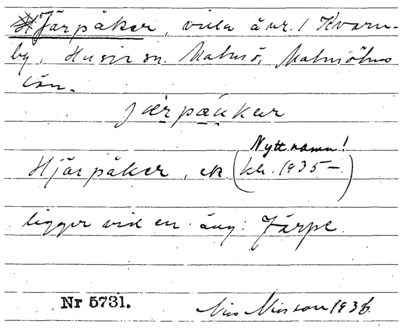 Hjärpåker, villa å nr. 1 Kvarn-
by, Husie sn. Malmö, Malmöhus
län.
järpåukar
Nytt namn!
Hjärpåker, ek (kl. 1935–)
ligger vid en äng: Järpe.
Nr 5731.
Nils Nilsson 1936.